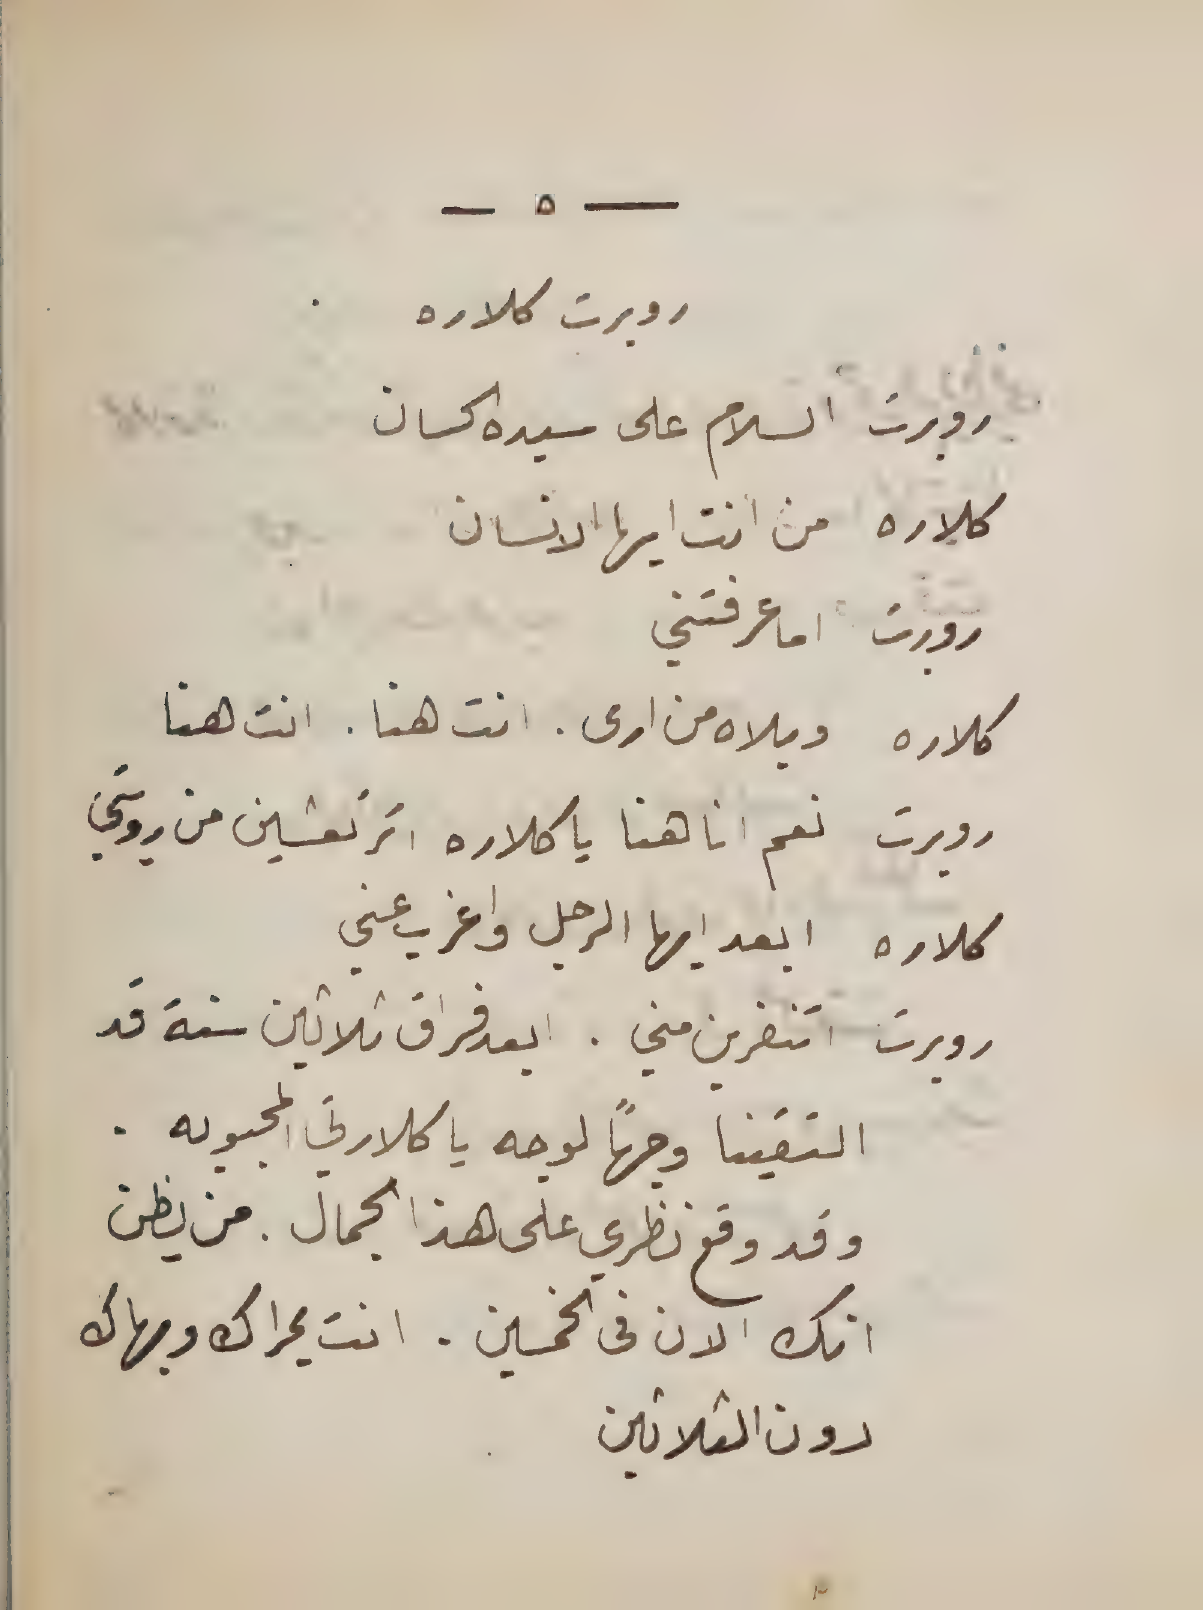 — ٥ —
روبرت كلاره
روبرت السلام على سيدة الحسان
كلاره من انت ايها الانسان
روبرت اما عرفتني
كلاره ويلاه من ارى . انت هنا . انت هنا
روبرت نعم انا هنا يا كلاره اترتعشين من رويتي
كلاره ابعد ايها الرجل واغرب عني
روبرت اتنفرين مني . ابعد فراق ثلاثين سنة قد
التقينا وجهًا لوجه يا كلارتي المحبوبه .
وقد وقع نظري على هذا الجمال . من يظن
انك الان فى الخمسين . انت بحراك وبهاك
دون الثلاثين